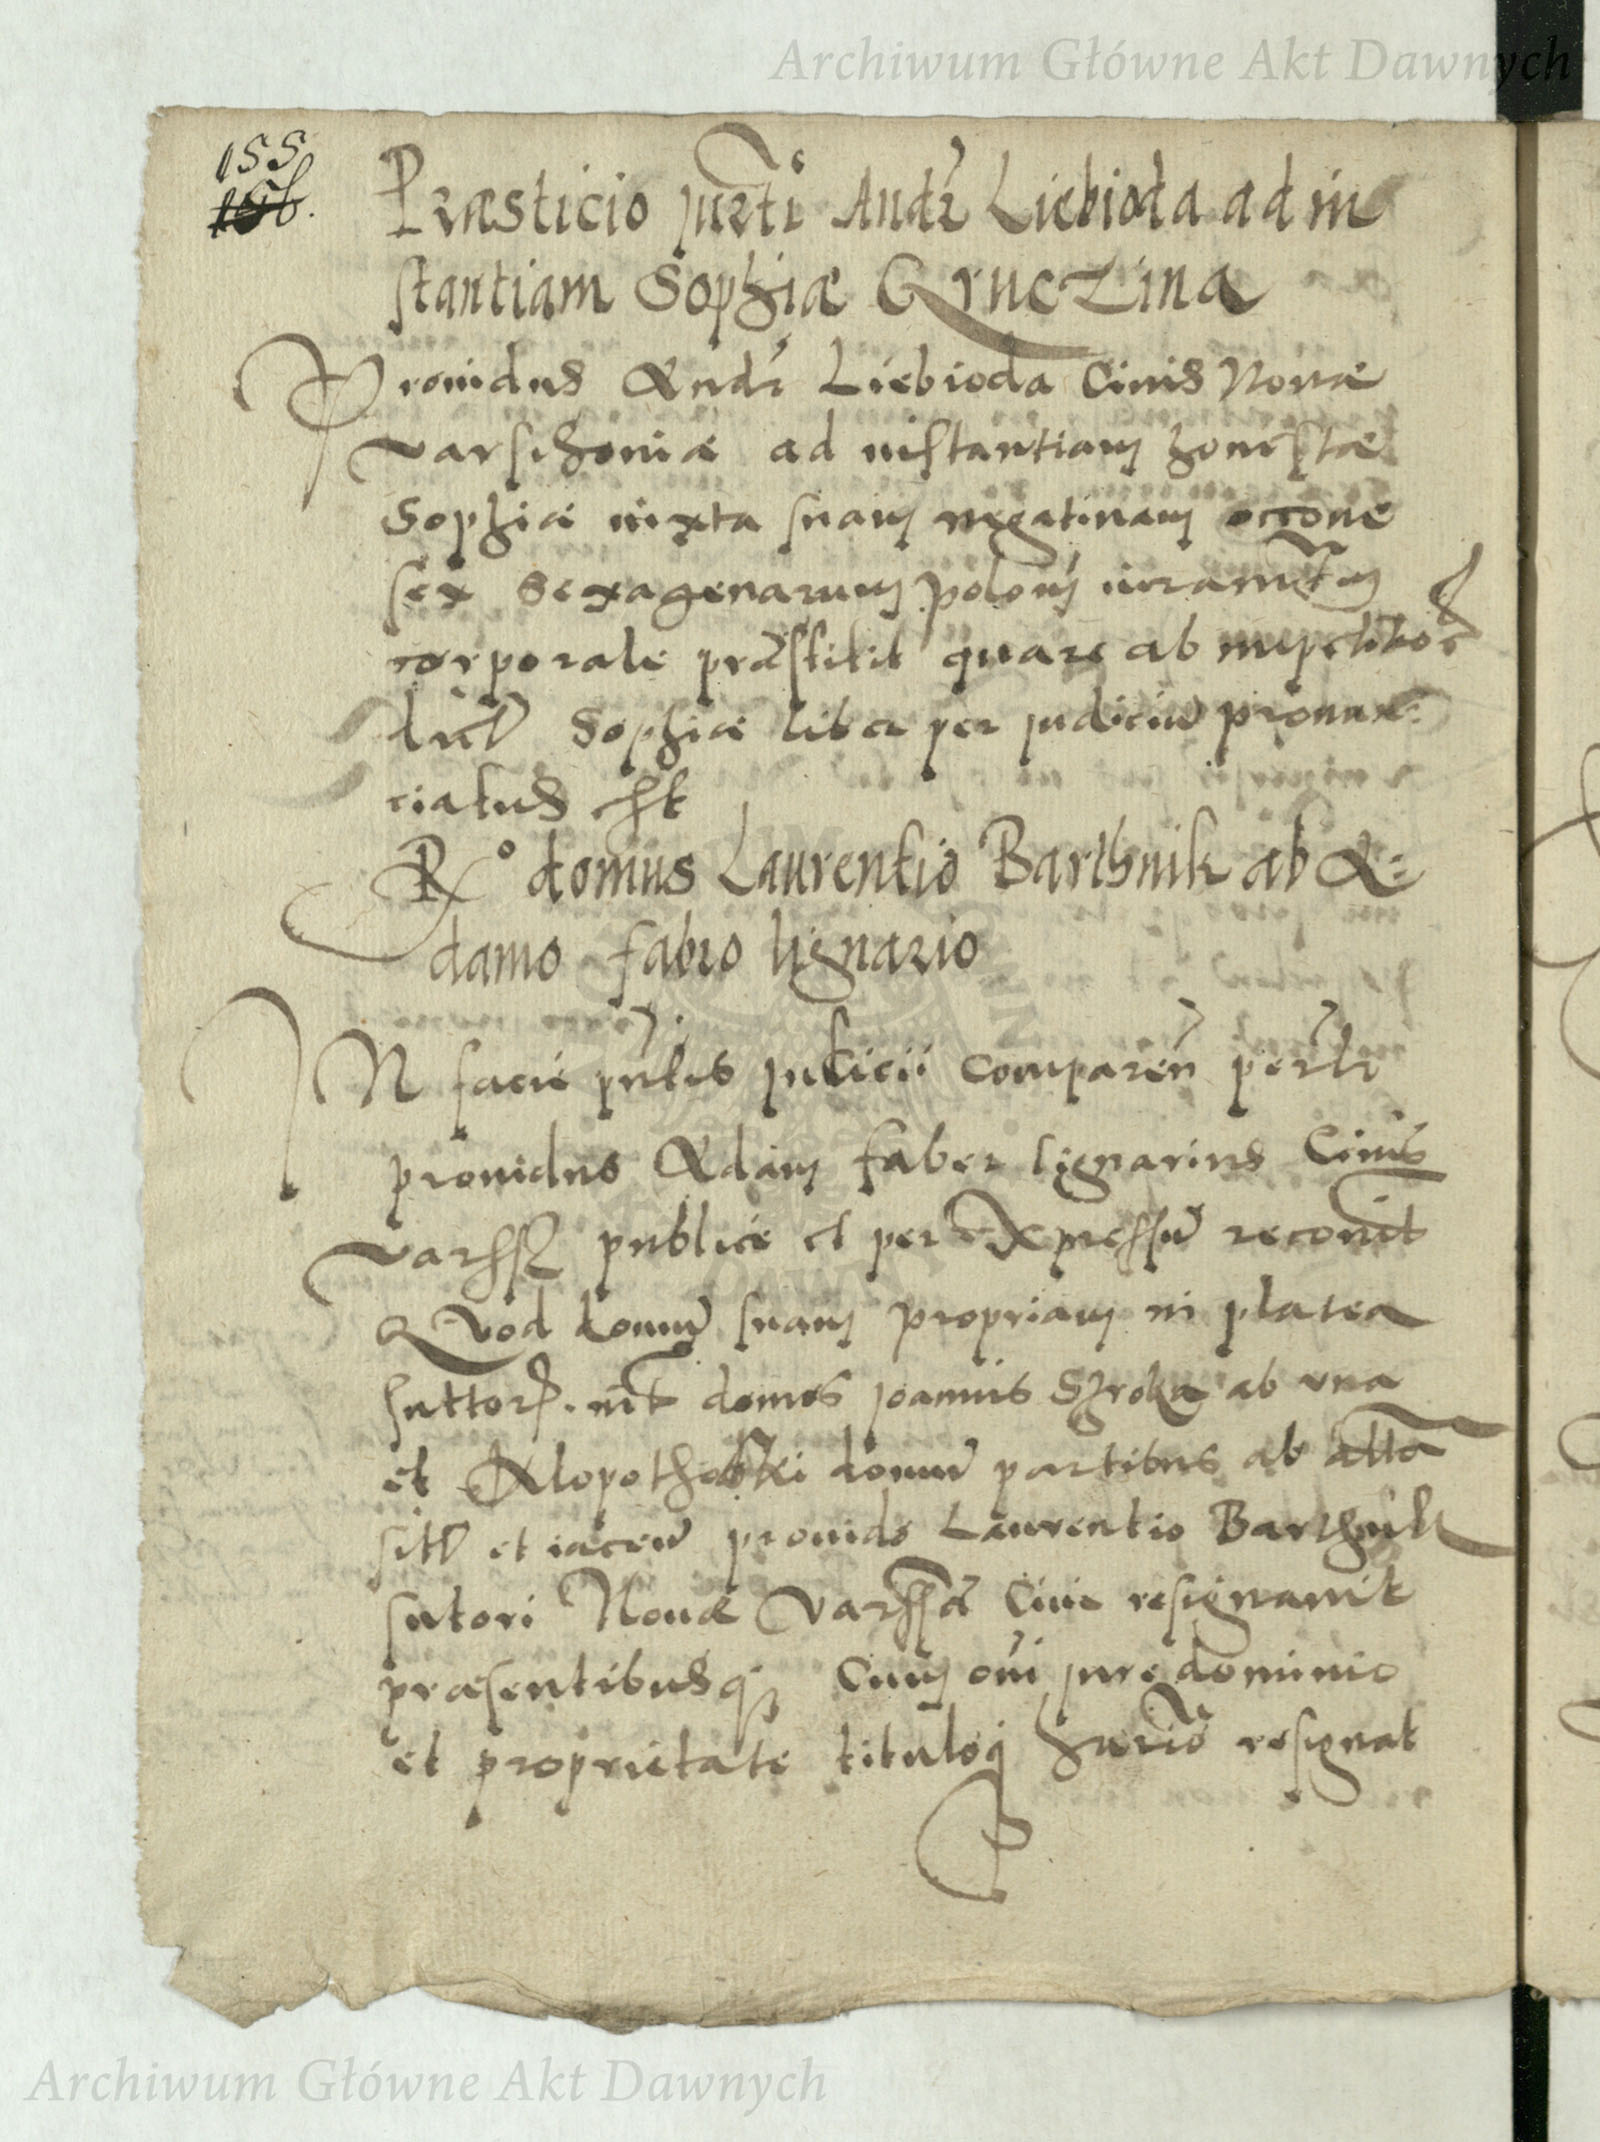 Archiwum Główne Akt Dawnych
155
156.
Præsticio jurti Andr Liebioda ad in
stantiam Sophiæ Gruczina
Prouidus Andr Liebioda Ciuis Nouæ
Varschouiæ ad instantiam honestæ
Sophiæ iuxta suam negatiuam occone
sex sexagenarum polon iuramtum
corporale præstitit quare ab impetito
dict Sophiæ liber per judiciu pronun:
ciatus est
Rx° domus Laurentio Barthnik ab A:
damo fabro lignario
IN facie pntis judicii comparen perlr
prouidus Adam faber lignarius Ciuis
Varss publice et per expressu recouit
Quod domu suam propriam in platea
suttor. int domos joannis Sroka ab una
et Klopothowski domu partibus ab alta
sit et iacen prouido Laurentio Barthnik
sutori Nouæ Varssa Ciui resignauit
præsentibusq Cum oni jure dominio
et proprietate tituloq hærio resignat
Archiwum Główne Akt Dawnych